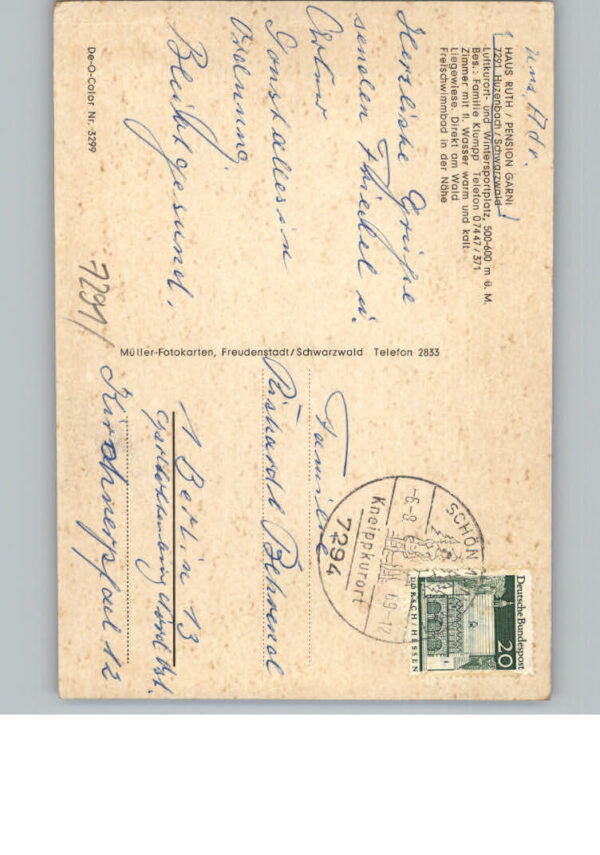 uns. Adr.
HAUS RUTH / PENSION GARNI
7291 Huzenbach/Schwarzwald
Luftkurort- und Wintersportplatz, 500-600 m ü. M.
Bes.: Familie Klumpp Telefon 07447/371
Zimmer mit fl. Wasser warm und kalt
Liegewiese. Direkt am Wald
Freischwimmbad in der Nähe
Herzliche Grüße
senden Thiedel u.
Sonst alles in
Ordnung.
Bleibt gesund.
De-O-Color Nr. 3299
7291/
Müller-Fotokarten, Freudenstadt/Schwarzwald Telefon 2833
SCHÖN
-6.-8
69-12
Kneippkurort
7294
Deutsche Bundespost
20
LORSCH/HESSEN
Familie
Richard Behrend
1 Berlin 13
Kirchnerpfad 12